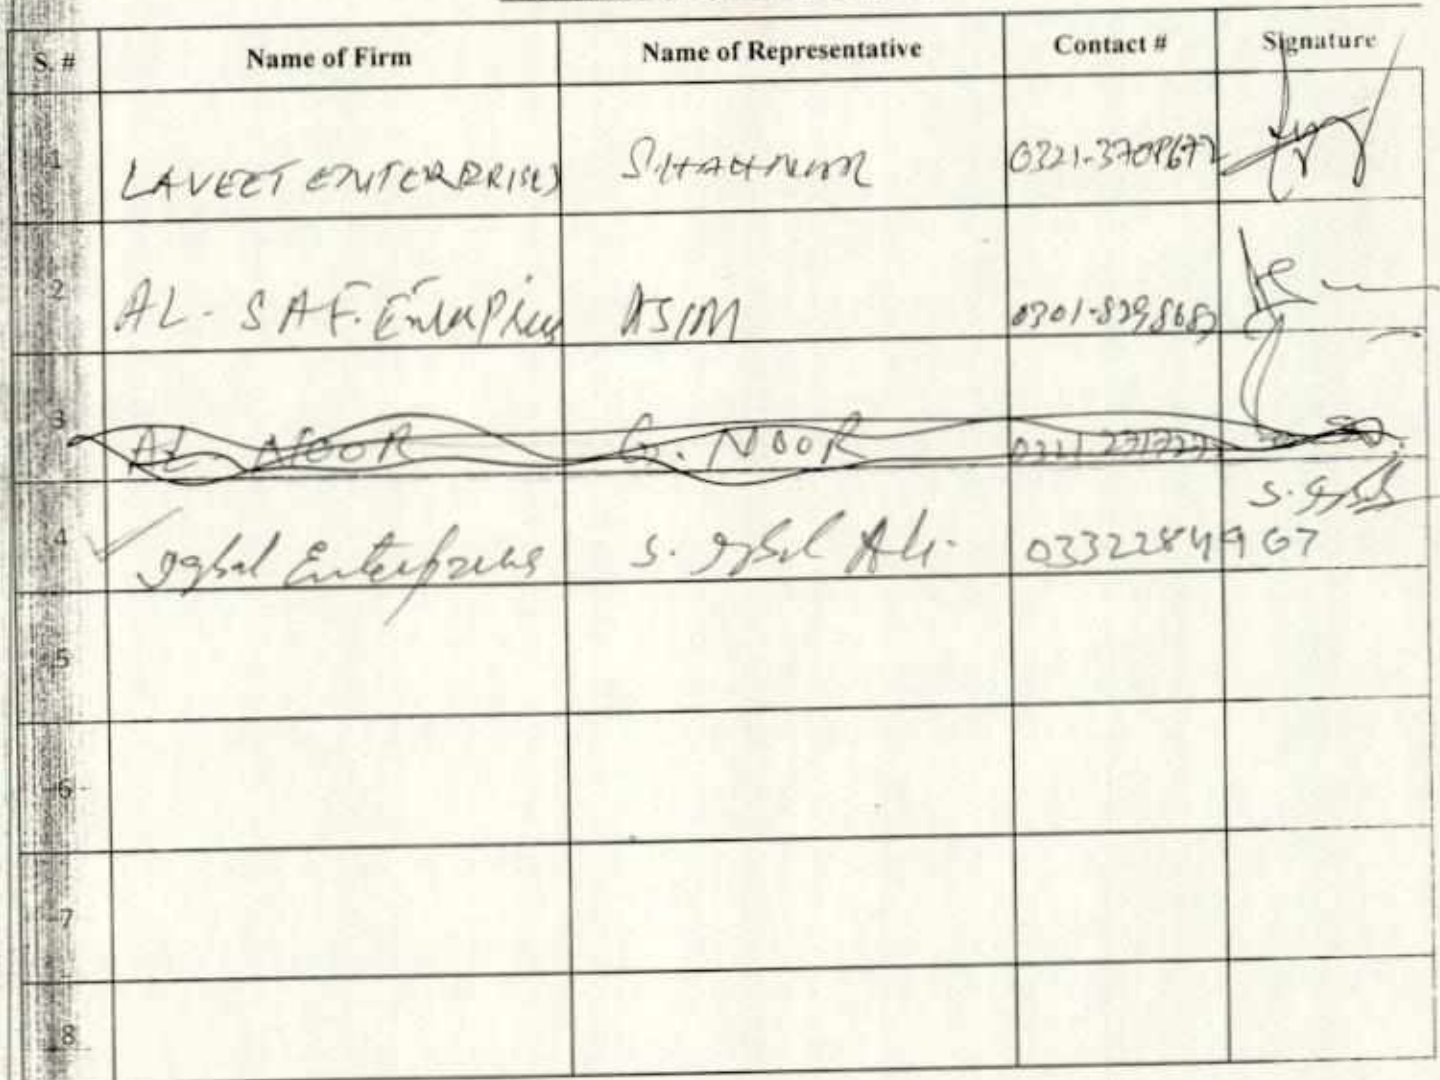 S. # Name of Firm Name of Representative Contact # Signature
1 LAVEET ENTERPRISES SHAHNUR 0321-3708677
2 AL-SAF. Enterprises ASIM
3 AL NOOR G. NOOR
4 Iqbal Enterprises S. Iqbal Ali. 03322849967
5
6
7
8